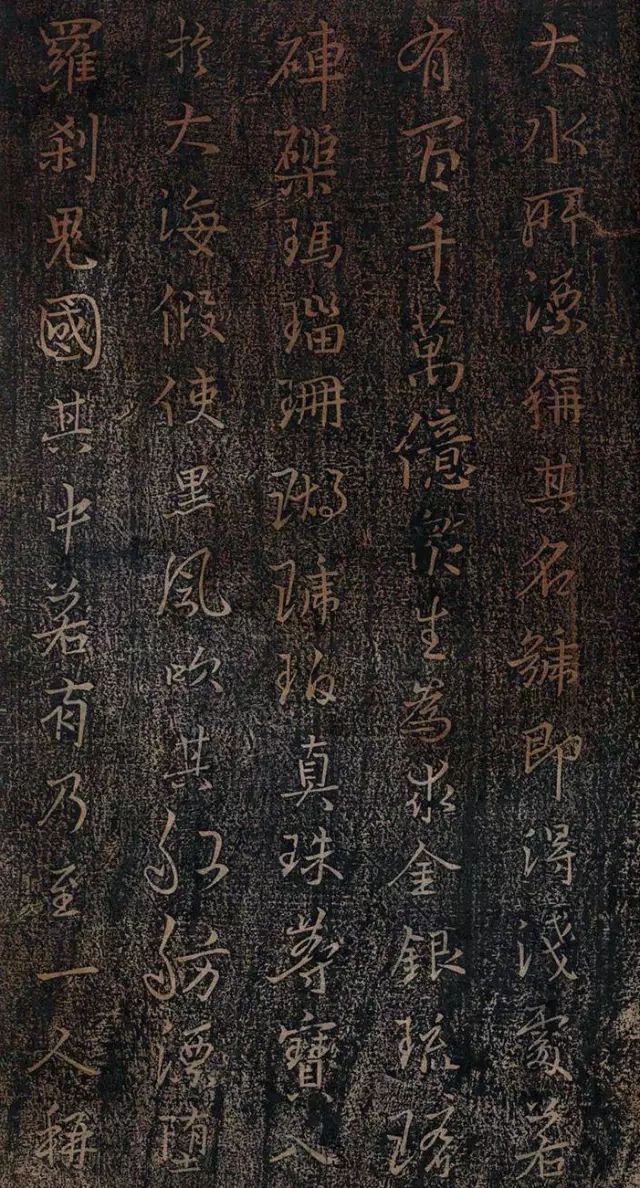 大水所漂稱其名號即得淺處若
有百千萬億眾生為求金銀琉璃
硨磲瑪瑙珊瑚琥珀真珠等寶入
於大海假使黑風吹其舡舫漂堕
羅剎鬼國其中若有乃至一人稱